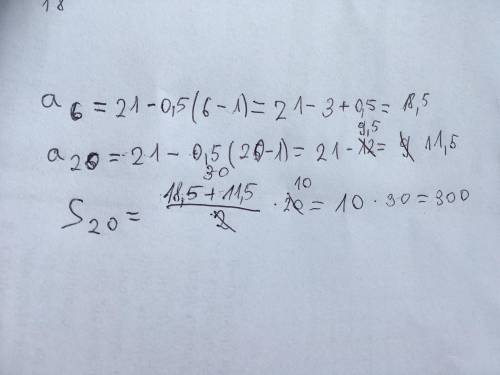 18
a₆ = 21 - 0,5(6-1) = 21 - 3 + 0,5 = 18,5
9,5
a₂₀ = 21 - 0,5(20-1) = 21 - 12 = 9 11,5
30 10
S₂₀ = 18,5 + 11,5 / 2 · 20 = 10 · 30 = 300